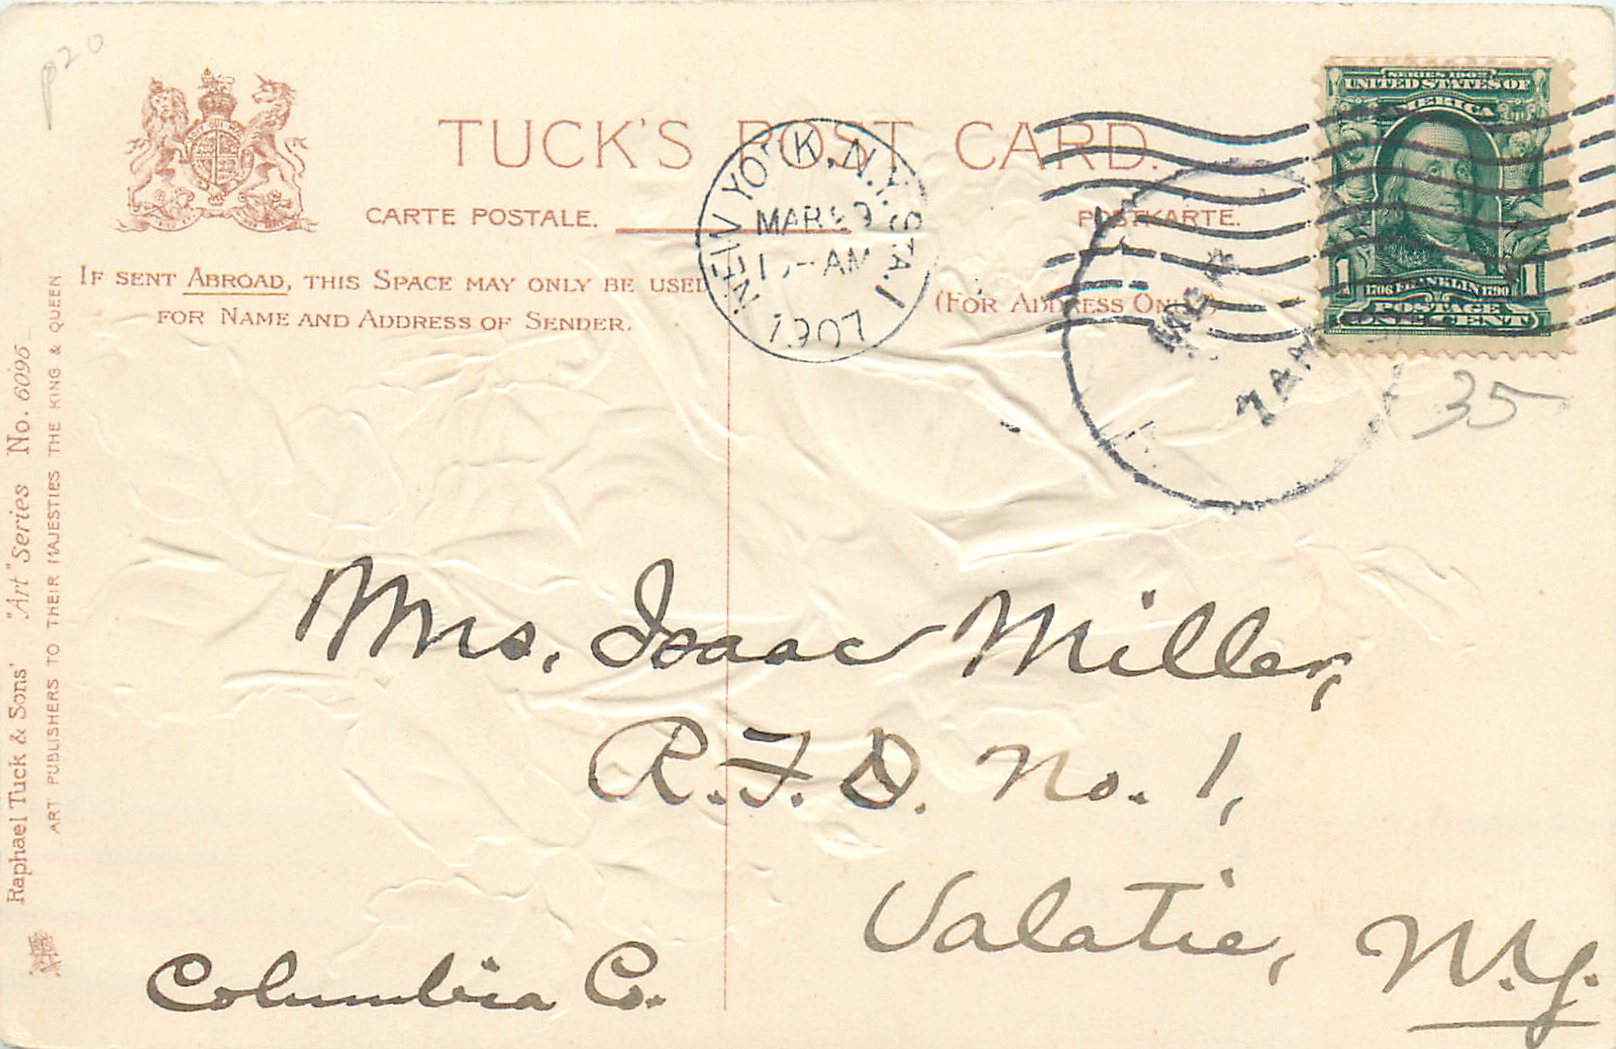 p20
TUCK'S POST CARD.
CARTE POSTALE.
POSTKARTE.
IF SENT ABROAD, THIS SPACE MAY ONLY BE USED
FOR NAME AND ADDRESS OF SENDER.
(FOR ADDRESS ONLY)
NEW YORK, N.Y. STA. 1
MAR
AM
1907
SERIES 1902
UNITED STATES OF
AMERICA
1 1
1706 FRANKLIN 1790
POSTAGE
ONE CENT
7 AM
35
Mrs. Isaac Miller,
R.F.D. No. 1,
Valatie, N.Y.
Columbia Co.
Raphael Tuck & Sons' "Art" Series No. 6096
ART PUBLISHERS TO THEIR MAJESTIES THE KING & QUEEN